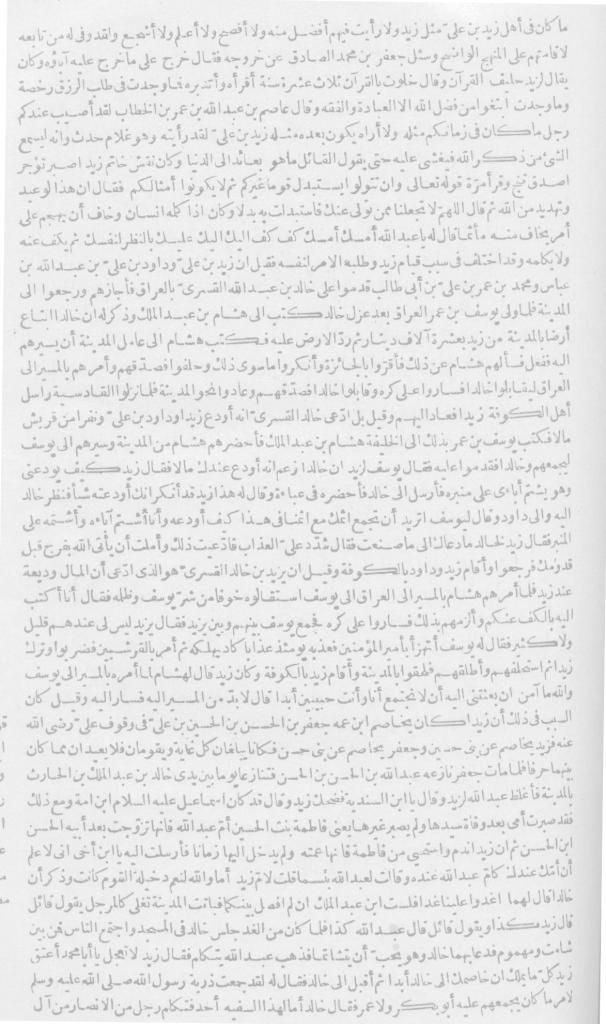 ما كان فى أهل زيد بن على مثل زيد ولا رأيت فيهم أفضل منه ولا أفصح ولا أعلم ولا أشجع ولقد وفى له من تابعه
لاقامتهم على المنهج الواضح وسئل جعفر بن محمد الصادق عن خروجه فقال خرج على ما خرج عليه آباؤه وكان
يقال لزيد حليف القرآن وقال خلوت بالقرآن ثلاث عشرة سنة أقرأه وأتدبره فما وجدت فى طلب الرزق رخصة
وما وجدت ابتغوا من فضل الله الا العبادة والفقه وقال عاصم بن عبد الله بن عمر بن الخطاب لقد أصيب عندكم
رجل ما كان فى زمانكم مثله ولا أراه يكون بعده مثله زيد بن على لقد رأيته وهو غلام حدث وانه ليسمع
الشئ من ذكر الله فيغشى عليه حتى يقول القائل ما هو بعائد الى الدنيا وكان نقش خاتم زيد اصبر تؤجر
اصدق تنج وقرأ مرة قوله تعالى وان تتولوا يستبدل قوما غيركم ثم لا يكونوا أمثالكم فقال ان هذا لوعيد
وتهديد من الله ثم قال اللهم لا تجعلنا ممن تولى عنك فاستبدلت به بدلا وكان اذا كلمه انسان وخاف أن يهجم على
أمر يخاف منه مأثما قال له يا عبد الله أمسك أمسك كف كف اليك اليك عليك بالنظر لنفسك ثم يكف عنه
ولا يكلمه وقد اختلف فى سبب قيام زيد وطلبه الامر لنفسه فقيل ان زيد بن على وداود بن على بن عبد الله بن
عباس ومحمد بن عمر بن على بن أبى طالب قدموا على خالد بن عبد الله القسرى بالعراق فأجازهم ورجعوا الى
المدينة فلما ولى يوسف بن عمر العراق بعد عزل خالد كتب الى هشام بن عبد الملك وذكر له ان خالدا ابتاع
أرضا بالمدينة من زيد بعشرة آلاف دينار ثم رد الارض عليه فكتب هشام الى عامل المدينة أن يسيرهم
اليه ففعل فسألهم هشام عن ذلك فأقروا بالجائزة وأنكروا ما سوى ذلك وحلفوا فصدقهم وأمرهم بالمسير الى
العراق ليقابلوا خالدا فساروا على كره وقابلوا خالدا فصدقهم وعادوا نحو المدينة فلما نزلوا القادسية راسل
أهل الكوفة زيدا فعاد اليهم وقيل بل ادعى خالد القسرى انه أودع زيدا وداود بن على ونفرا من قريش
مالا فكتب يوسف بن عمر بذلك الى الخليفة هشام بن عبد الملك فأحضرهم هشام من المدينة وسيرهم الى يوسف
ليجمعهم وخالدا فقدموا عليه فقال يوسف لزيد ان خالدا زعم انه أودع عندك مالا فقال زيد كيف يودعنى
وهو يشتم آباءى على منبره فأرسل الى خالد فأحضره فى عباءة وقال له هذا زيد قد أنكر انك أودعته شيأ فنظر خالد
اليه والى داود وقال ليوسف أتريد أن تجمع اثمك مع اثمنا فى هذا كيف أودعه وأنا أشتم آباءه وأشتمه على
المنبر فقال زيد لخالد ما دعاك الى ما صنعت فقال شدد على العذاب فادعيت ذلك وأملت أن يأتى الله بفرج قبل
قدومك فرجعوا وأقام زيد وداود بالكوفة وقيل ان يزيد بن خالد القسرى هو الذى ادعى أن المال وديعة
عند زيد فلما أمرهم هشام بالمسير الى العراق الى يوسف استقالوه خوفا من شر يوسف وظلمه فقال أنا أكتب
اليه بالكف عنكم وألزمهم بذلك فساروا على كره فجمع يوسف بينهم وبين يزيد فقال يزيد ليس لى عندهم قليل
ولا كثير فقال له يوسف أتهزأ بأمير المؤمنين فعذبه يومئذ عذابا كاد يهلكه ثم أمر بالقرشيين فضربوا وترك
زيدا ثم استحلفهم وأطلقهم فلحقوا بالمدينة وأقام زيد بالكوفة وكان زيد قال لهشام لما أمره بالمسير الى يوسف
والله ما آمن ان بعثتنى اليه أن لا نجتمع أنا وأنت حيين أبدا قال لا بد من المسير اليه فسار اليه وقيل كان
السبب فى ذلك أن زيدا كان يخاصم ابن عمه جعفر بن الحسن بن الحسن بن على فى وقوف على رضى الله
عنه فزيد يخاصم عن بنى حسين وجعفر يخاصم عن بنى حسن فكانا يبلغان كل غاية ويقومان فلا يعيدان مما كان
بينهما حرفا فلما مات جعفر نازعه عبد الله بن الحسن بن الحسن فتنازعا يوما بين يدى خالد بن عبد الملك بن الحارث
بالمدينة فأغلظ عبد الله لزيد وقال يا ابن السندية فضحك زيد وقال قد كان اسماعيل عليه السلام ابن امة ومع ذلك
فقد صبرت أمى بعد وفاة سيدها ولم يصبر غيرها يعنى فاطمة بنت الحسين أم عبد الله فانها تزوجت بعد أبيه الحسن
ابن الحسن ثم ان زيدا ندم واستحيى من فاطمة فانها عمته ولم يدخل اليها زمانا فأرسلت اليه يا ابن أخى انى لاعلم
أن أمك عندك كأم عبد الله عنده وقالت لعبد الله بئسما قلت لام زيد أما والله لنعم دخيلة القوم كانت وذكر أن
خالدا قال لهما اغدوا علينا غدا فلست ابن عبد الملك ان لم أفصل بينكما فباتت المدينة تغلى كالمرجل يقول قائل
قال زيد كذا ويقول قائل قال عبد الله كذا فلما كان من الغد جلس خالد فى المسجد واجتمع الناس فمن بين
شامت ومهموم فدعا بهما خالد وهو يحب أن يتشاتما فذهب عبد الله يتكلم فقال زيد لا تعجل يا أبا محمد أعتق
زيد كل ما يملك ان خاصمك الى خالد أبدا ثم أقبل الى خالد فقال له لقد جمعت ذرية رسول الله صلى الله عليه وسلم
لامر ما كان يجمعهم عليه أبو بكر ولا عمر فقال خالد أما لهذا السفيه أحد فتكلم رجل من الانصار من آل